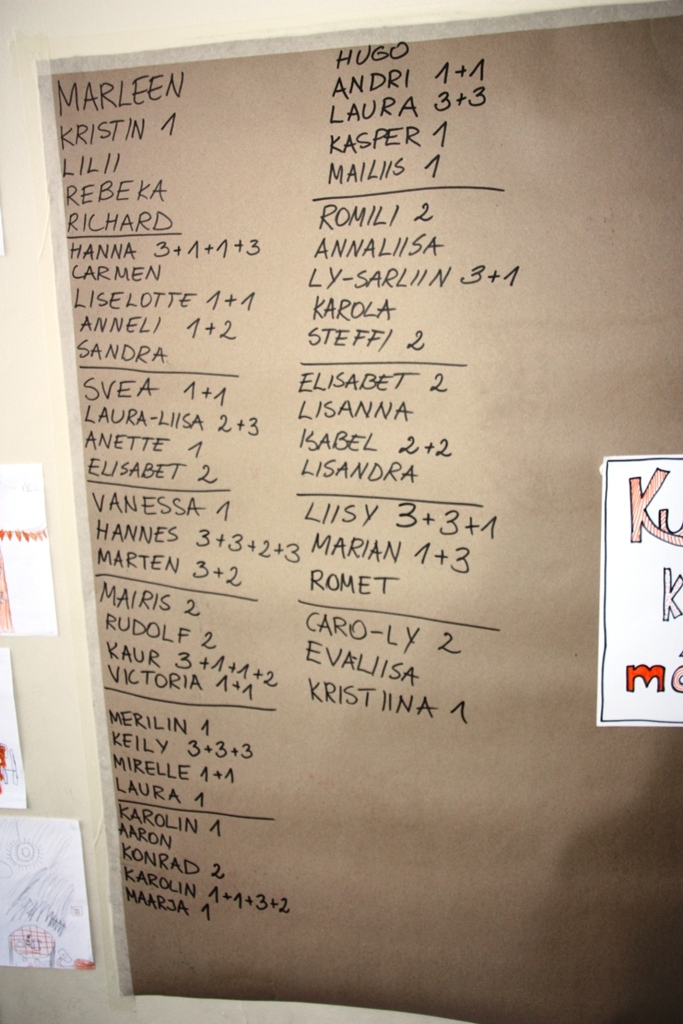 MARLEEN
KRISTIN 1
LILII
REBEKA
RICHARD
HANNA 3+1+1+3
CARMEN
LISELOTTE 1+1
ANNELI 1+2
SANDRA
SVEA 1+1
LAURA-LIISA 2+3
ANETTE 1
ELISABET 2
VANESSA 1
HANNES 3+3+2+3
MARTEN 3+2
MAIRIS 2
RUDOLF 2
KAUR 3+1+1+2
VICTORIA 1+1
MERILIN 1
KEILY 3+3+3
MIRELLE 1+1
LAURA 1
KAROLIN 1
AARON
KONRAD 2
KAROLIN 1+1+3+2
MAARJA 1
HUGO
ANDRI 1+1
LAURA 3+3
KASPER 1
MAILIIS 1
ROMILI 2
ANNALIISA
LY-SARLIIN 3+1
KAROLA
STEFFI 2
ELISABET 2
LISANNA
ISABEL 2+2
LISANDRA
LIISY 3+3+1
MARIAN 1+3
ROMET
CARO-LY 2
EVALIISA
KRISTIINA 1